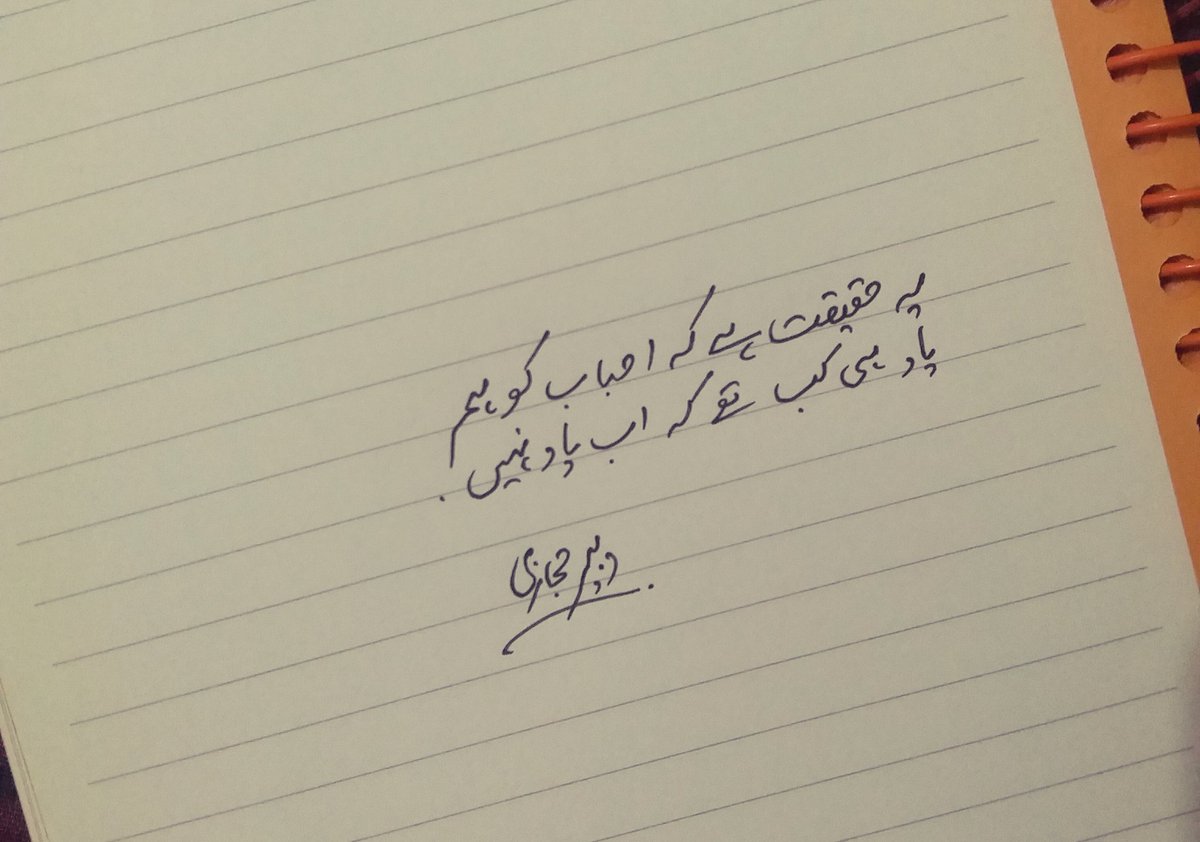 یہ حقیقت ہے کہ احباب کو ہم
یاد ہی کب تھے کہ اب یاد نہیں .
حجازی